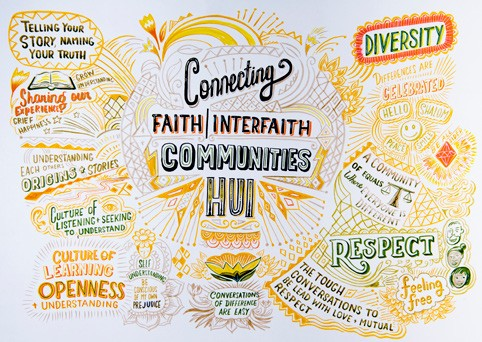 TELLING YOUR
STORY, NAMING
YOUR TRUTH
GROW
UNDERSTANDING
Sharing our
EXPERIENCES
GRIEF
HAPPINESS
UNDERSTANDING
EACH OTHERS
ORIGINS + STORIES
CULTURE OF
LISTENING + SEEKING
TO UNDERSTAND
CULTURE OF
LEARNING
OPENNESS
+ UNDERSTANDING
SELF
UNDERSTANDING
BE
CONSCIOUS
OF MY OWN
PREJUDICE
Connecting
FAITH/INTERFAITH
COMMUNITIES
HUI
CONVERSATIONS
OF DIFFERENCE
ARE EASY
DIVERSITY
DIFFERENCES ARE
CELEBRATED
HELLO
SHALOM
PEACE
A COMMUNITY
OF EQUALS
Where EVERYONE IS
DIFFERENT
RESPECT
THE TOUGH
CONVERSATIONS TO
BE LEAD WITH LOVE + MUTUAL
RESPECT
feeling
free